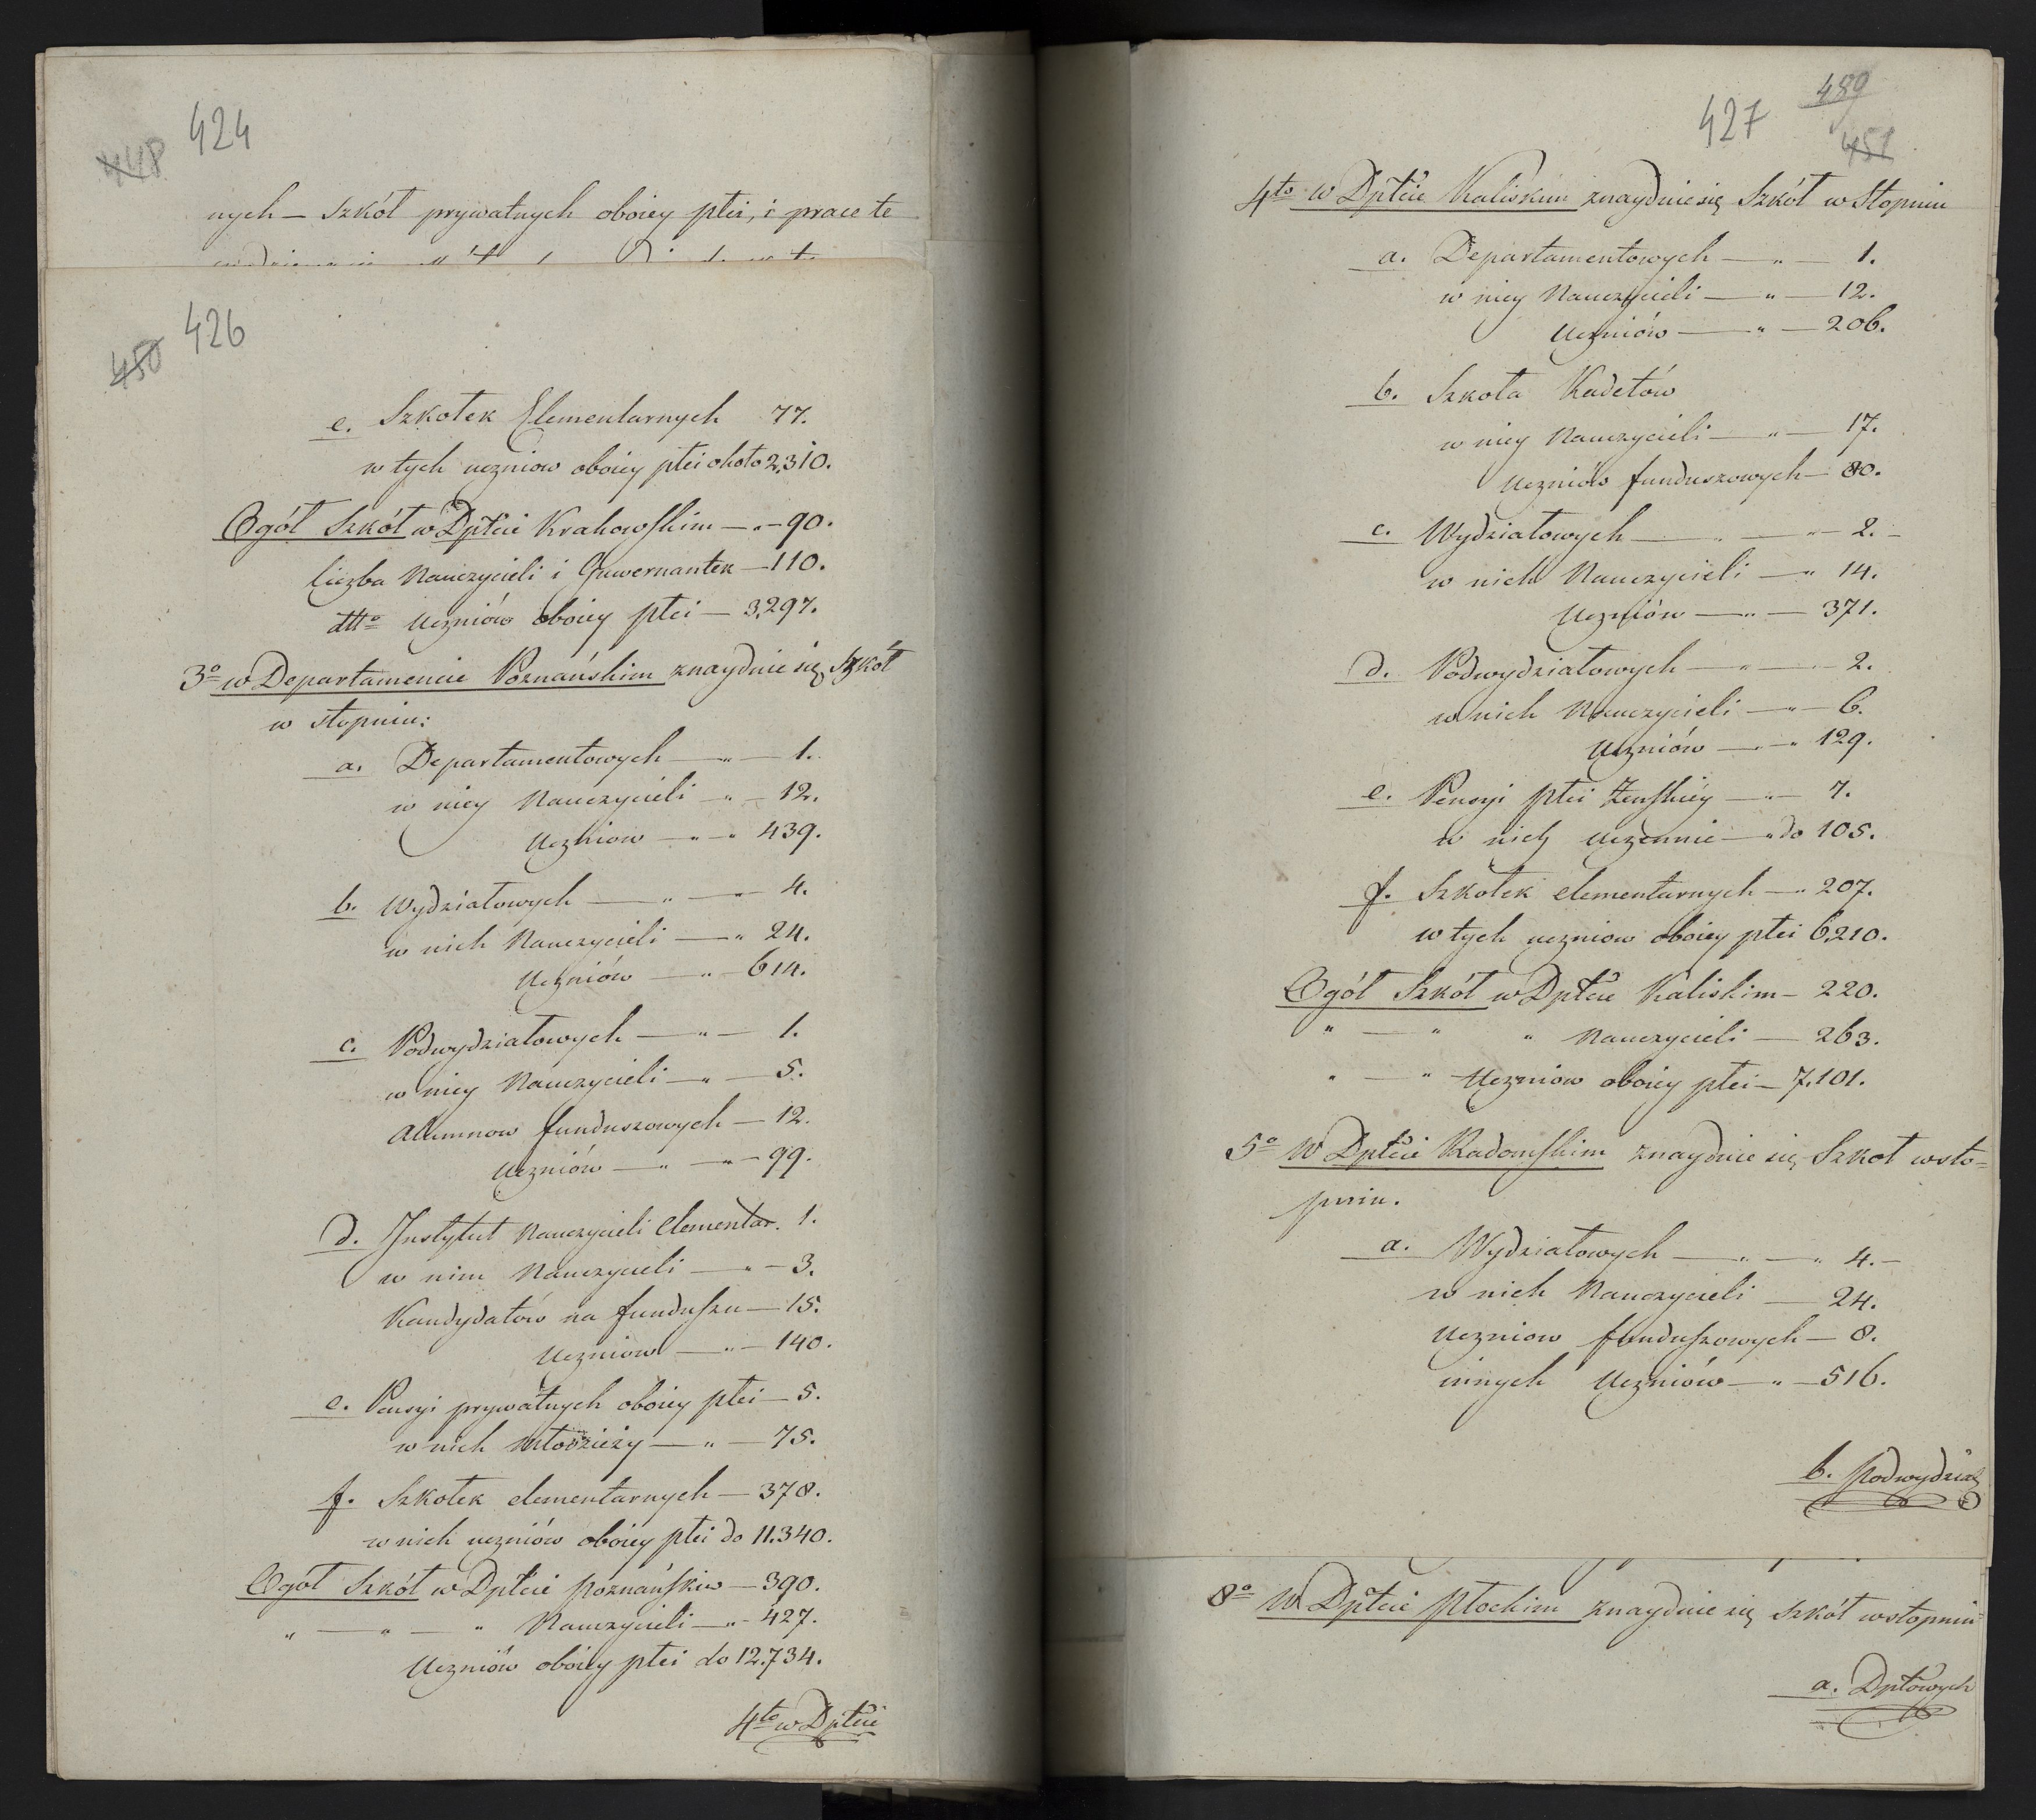 424
448
nych — Szkół prywatnych oboiey płci, i prace te
426
450
e. Szkołek Elementarnych 77.
w tych uczniow oboiey płci około 2,310.
Ogół Szkół w Dptcie Krakowskim — „ — 90.
liczba Nauczycieli i Guwernantek — 110.
dtto Uczniów oboiey płci — 3,297.
3o w Departamencie Poznańskim znayduie się Szkół
w stopniu:
a. Departamentowych — „ — 1.
w niey Nauczycieli — „ — 12.
Uczniow — „ — „ 439.
b. Wydziałowych — „ — „ — 4.
w nich Nauczycieli — „ 24.
Uczniów — „ — 614.
c. Podwydziałowych — „ — 1.
w niey Nauczycieli — „ — 5.
Alumnow funduszowych — 12.
Uczniów — „ — „ — 99.
d. Instytut Nauczycieli Elementar. 1.
w nim Nauczycieli — „ — 3.
Kandydatów na funduszu — 15.
Uczniow — „ — 140.
e. Pensyi prywatnych oboiey płci — 5.
w nich młodzieży — „ — 75.
f. Szkołek elementarnych — 378.
w nich uczniów oboiey płci do 11.340.
Ogół Szkół w Dptcie Poznańskim — 390.
„ — „ — „ Nauczycieli — „ — 427.
Uczniów oboiey płci do 12.734.
4to w Dptcie
489
427
451
4to w Dptcie Kaliskim znayduie się Szkół w Stopniu
a. Departamentowych — „ — 1.
w niey Nauczycieli — „ — 12.
Uczniów — „ — 206.
b. Szkoła Kadetów
w niey Nauczycieli — „ — 17.
Uczniów funduszowych — 80.
c. Wydziałowych — „ — „ — 2. —
w nich Nauczycieli — „ 14.
Uczniów — „ — 371.
d. Podwydziałowych — „ — „ — 2.
w nich Nauczycieli — „ — 6.
Uczniów — „ — „ 129.
e. Pensyi płci żenskiéy — „ — 7.
w nich uczennic — „ do 105.
f. Szkołek elementarnych — „ 207.
w tych uczniow oboiey płci 6,210.
Ogół Szkół w Dptcie Kaliskim — 220.
„ — „ „ Nauczycieli — 263.
„ — „ Uczniow oboiey płci — 7,101.
5o W Dptcie Radomskim znayduie się Szkoł w sto=
pniu.
a. Wydziałowych — „ — „ 4. —
w nich Nauczycieli — 24.
Uczniow funduszowych — 8.
innych Uczniów — „ — 516.
b. Podwydział
8o W Dptcie Płockim znayduie się Szkół w stopniu
a. Dptowych